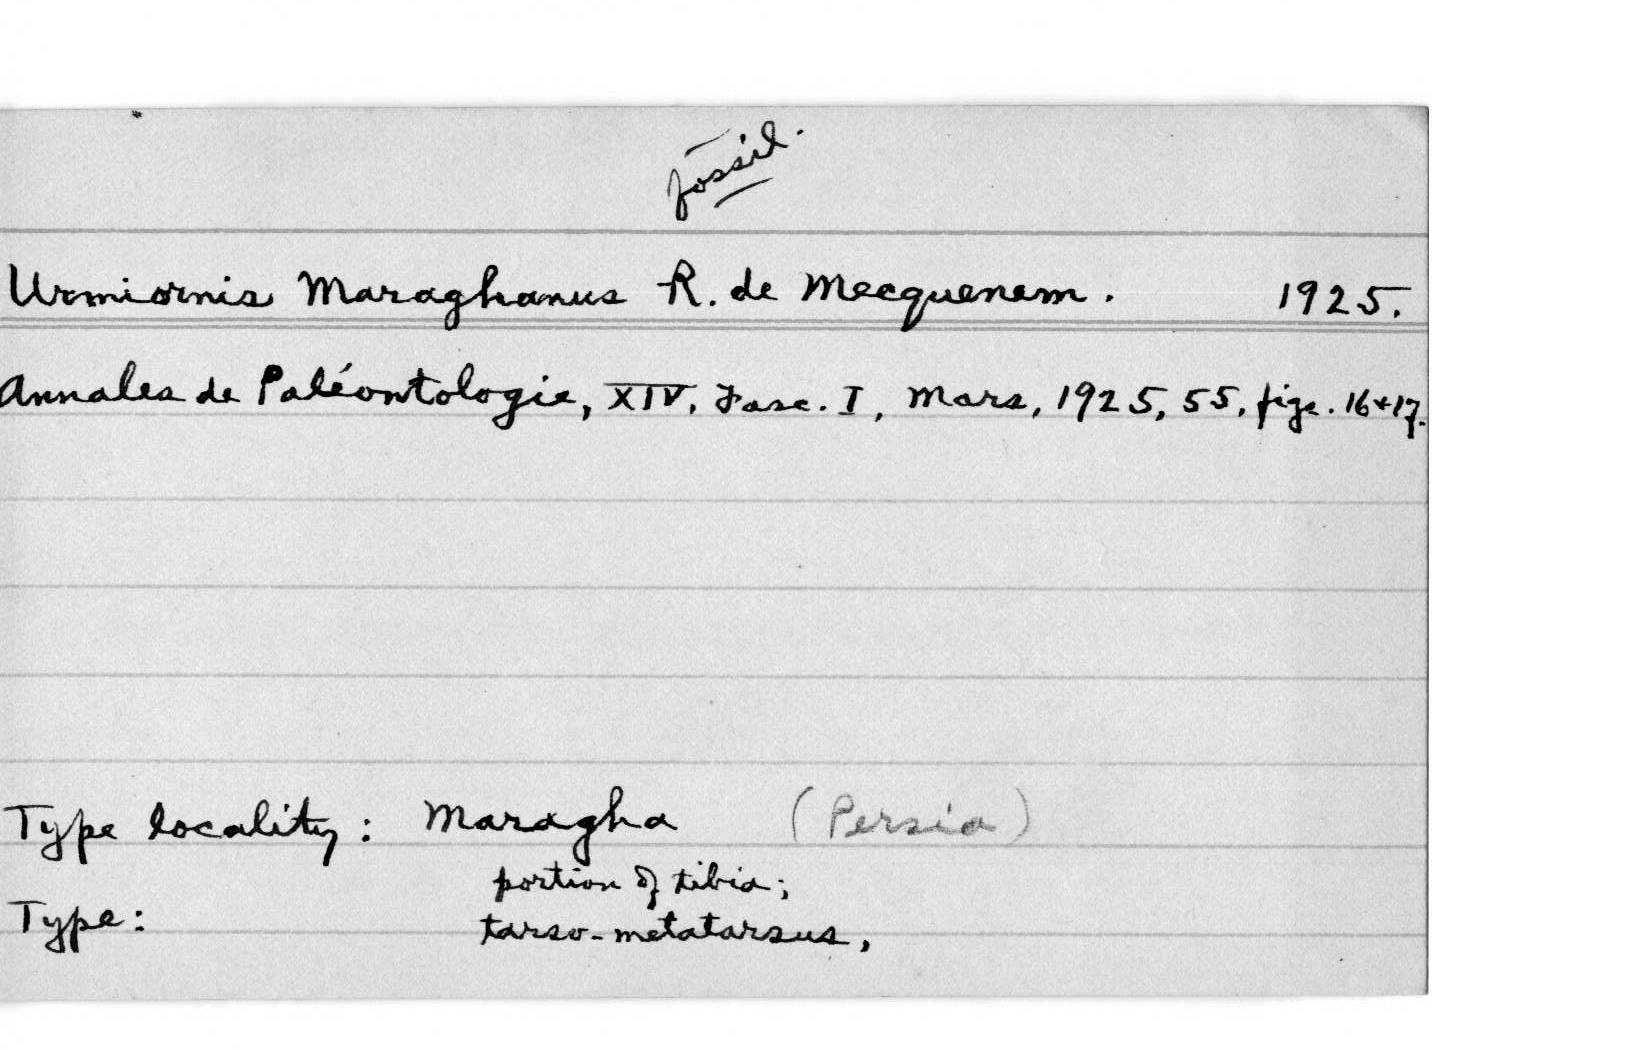 fossil.
Urmiornis Maraghanus R. de Mecquenem. 1925.
Annales de Paléontologie, XIV, Fasc. I, Mars, 1925, 55, figs. 16+17.
Type locality: Maragha (Persia)
portion of tibia;
Type: tarso-metatarsus,